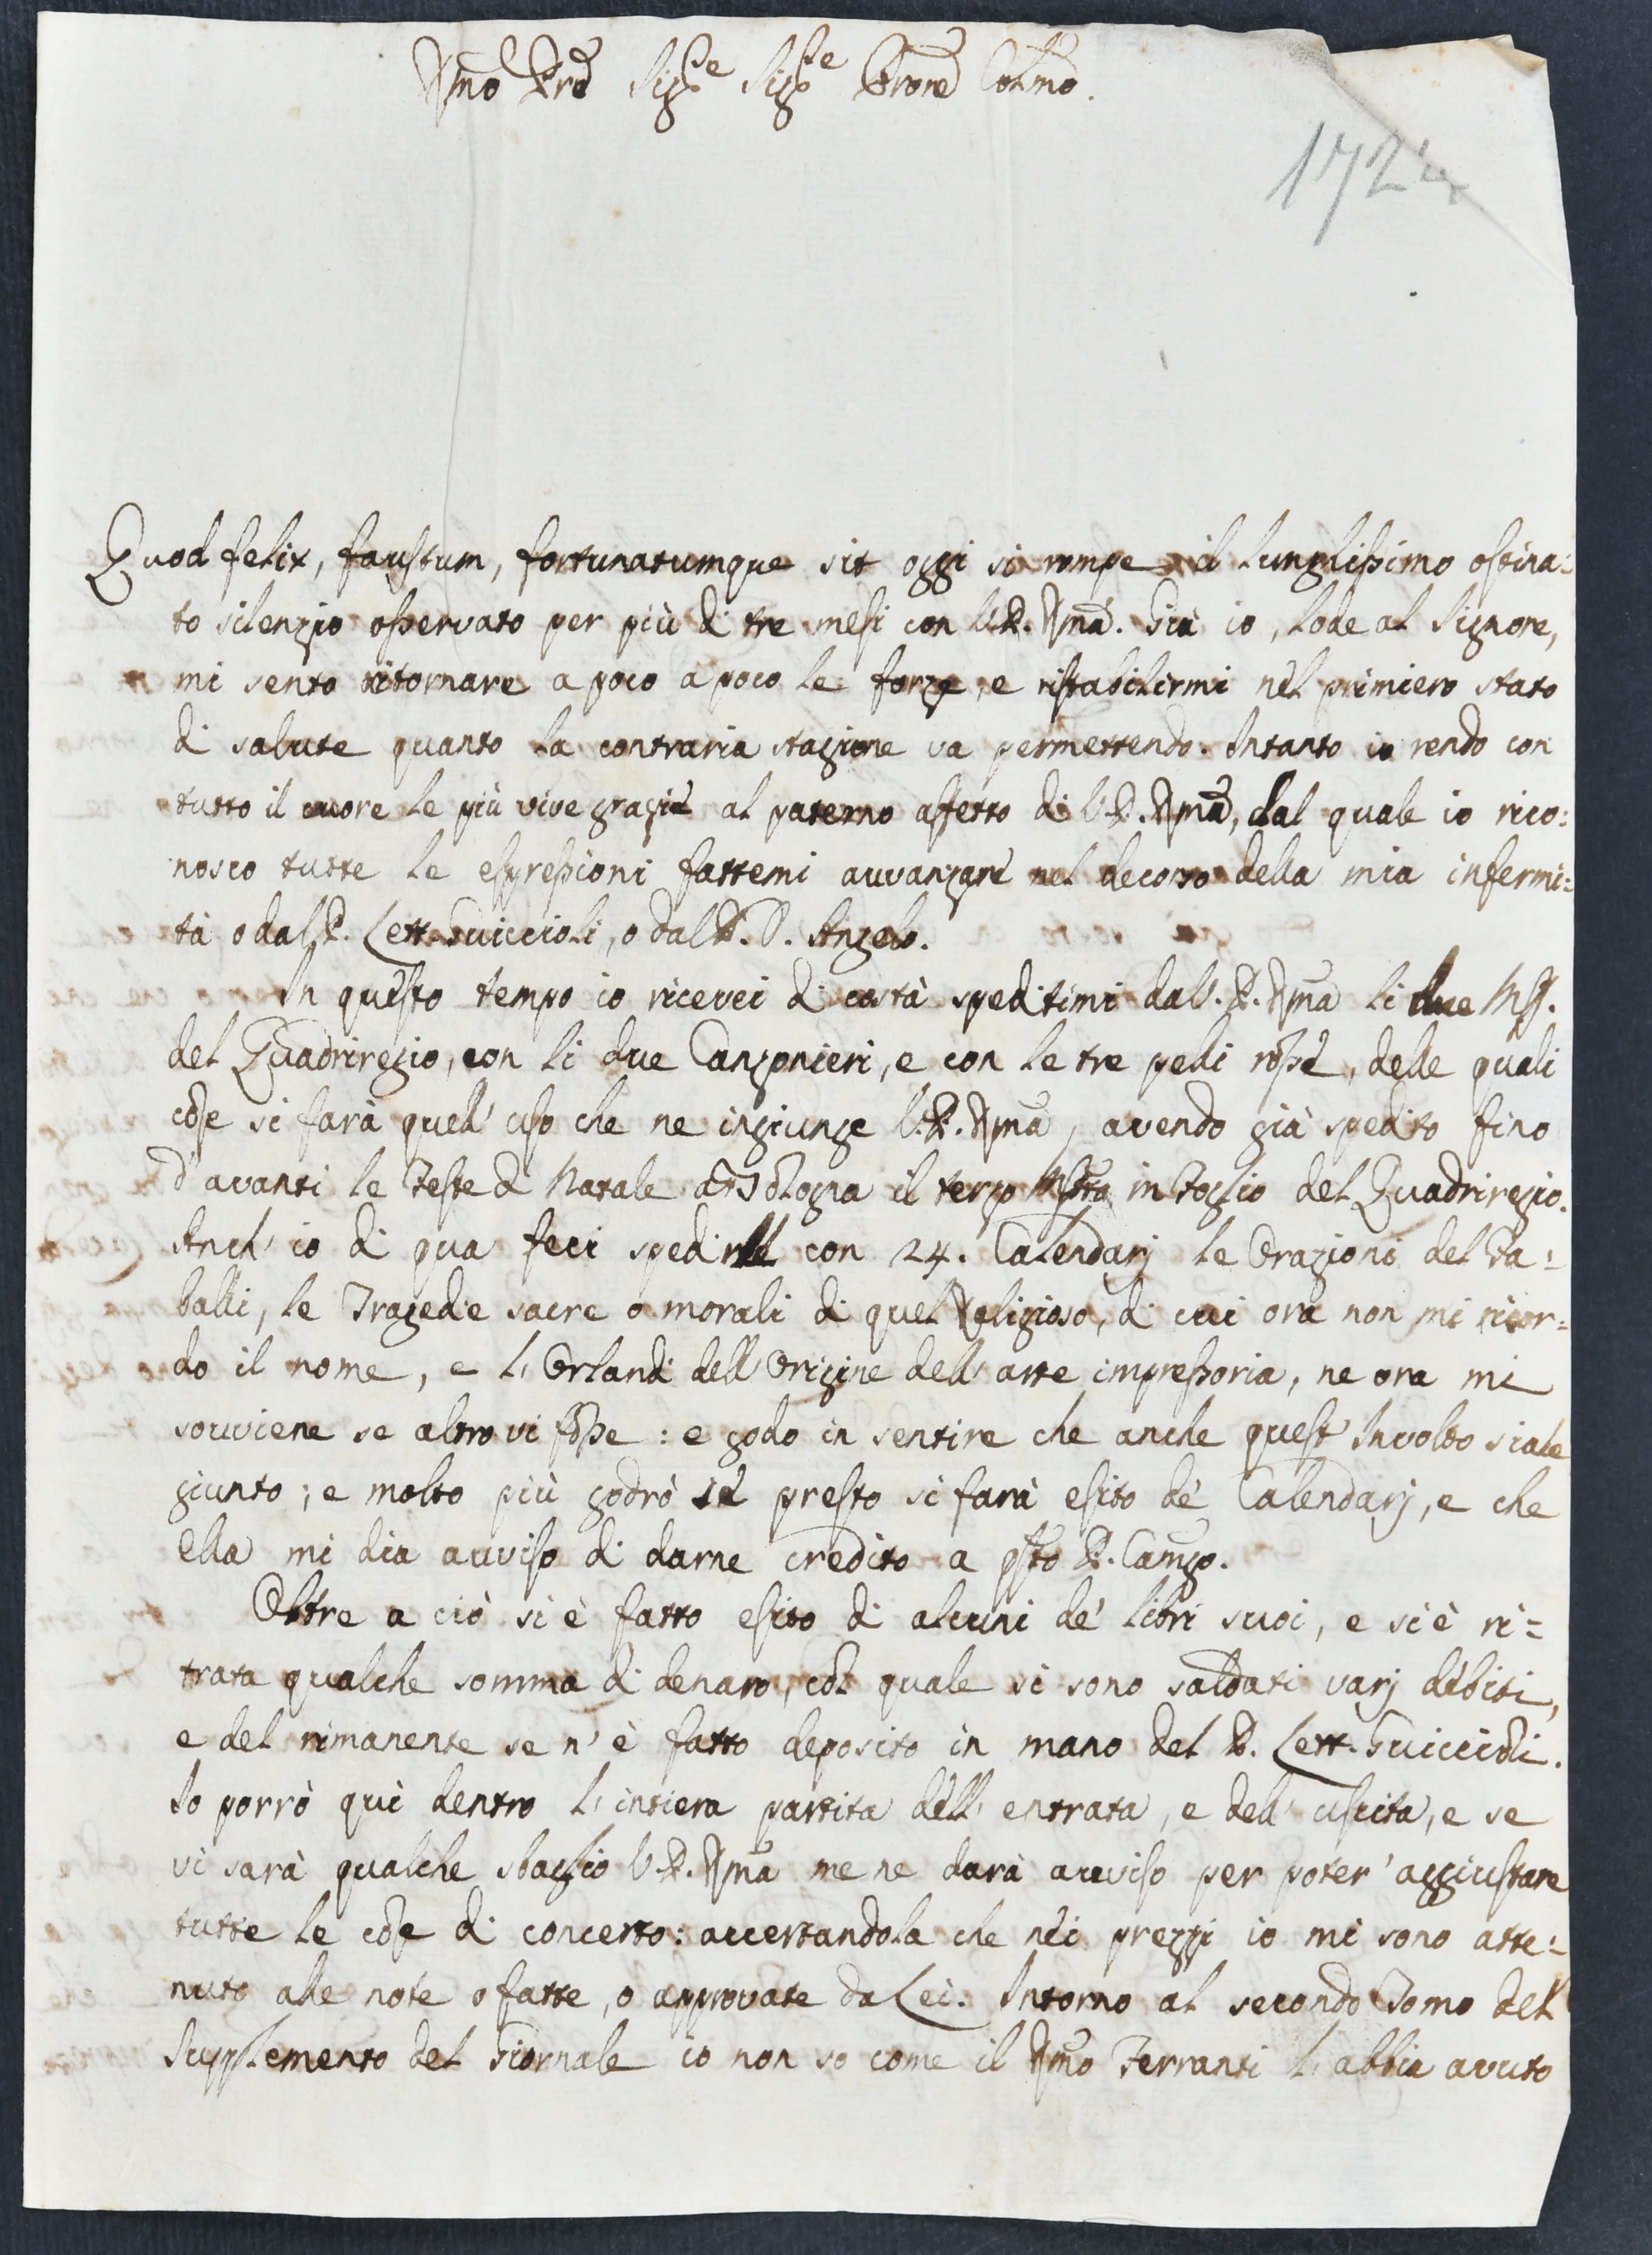 Rmo Pre Sigre Sigre Prone Colmo.
1724
Quod felix, faustum, fortunatumque sit oggi si rompe il lunghissimo ostina=
to silenzio osservato per più di tre mesi con V. P. Rma. Già io, lode al Signore,
mi sento ritornare a poco a poco le forze, e ristabilirmi nel primiero stato
di salute quanto la contraria stagione va permettendo. Intanto io rendo con
tutto il cuore le più vive grazie al paterno affetto di V. P. Rma, dal quale io rico=
nosco tutte le espressioni fattemi avvanzare nel decorso della mia infermi=
tà o dal P. Lett. Guiccioli, o dal P. D. Angelo.
In questo tempo io ricevei di costà speditimi da V. P. Rma li due Mss.
del Quadriregio, con li due Canzonieri, e con le tre pelli rosse, delle quali
cose si farà quell' uso che ne ingiunge V. P. Rma, avendo già spedito fino
d'avanti le Feste di Natale a Bologna il terzo Msto in foglio del Quadriregio.
Anch' io di qua feci spedirle con 24. Calendarj le Orazioni del Ta=
balli, le Tragedie sacre o morali di quel Religioso, di cui ora non mi ricor=
do il nome, e l' Orlandi dell' Origine dell' arte impressoria, ne ora mi
souviene se altro vi fosse: e godo in sentire che anche quest' Involto siale
giunto; e molto più godrò se presto si farà esito de' Calendarj, e che
Ella mi dia avviso di darne credito a qsto P. Camgo.
Oltre a ciò si è fatto esito di alcuni de' libri suoi, e si è ri=
trata qualche somma di denaro, col quale si sono saldati varj debiti,
e del rimanente se n' è fatto deposito in mano del P. Lett. Guiccioli.
Io porrò quì dentro l' intiera partita dell' entrata, e dell' uscita, e se
vi sarà qualche sbaglio V. P. Rma me ne darà avviso per poter' aggiustare
tutte le cose di concerto: accertandola che nei prezzi io mi sono atte=
nuto alle note o fatte, o approvate da Lei. Intorno al secondo Tomo del
Supplemento del Giornale io non so come il Rmo Ferranti l' abbia avuto